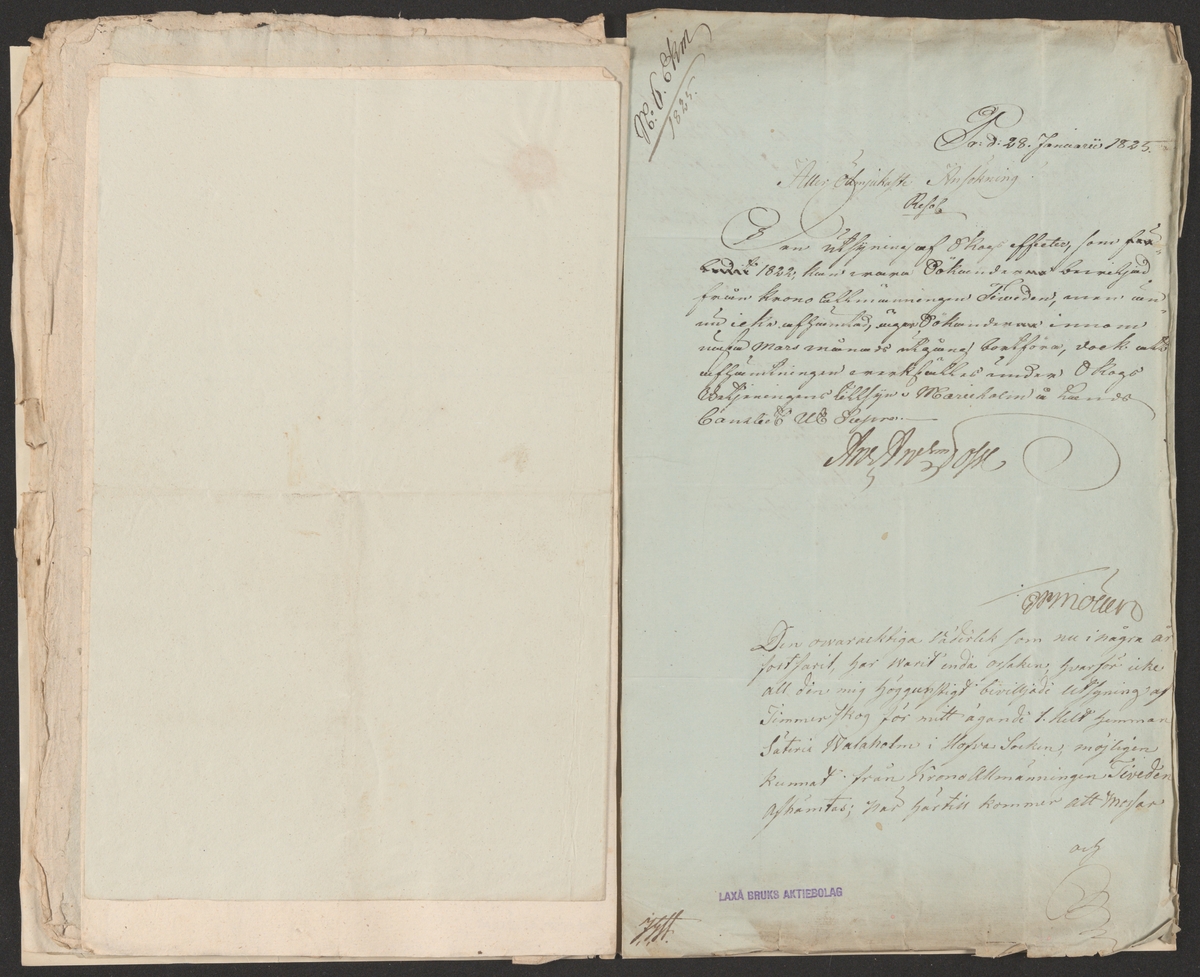 N:o 6.
1825.
Pr: d: 28. Januarii 1825.
Aller Ödmjukaste Ansökning
Resol.
Den utsyning af Skogs effecter, som
1822, kan wara Sökanden bewiljad
från Krono Allmänningen Tiweden, men än-
nu icke afhämtad, äger Sökanden innom
nästa Mars månads utgång bortföra, dock att
afhämtningen werkställes under Skogs
Betjeningens tillsyn. Marieholm å Lands
Cancelliet Ut Supra.
Den owaraktiga väderlek som nu i några år
fortfarit, har warit enda orsaken, hvarför icke
all den mig höggunstigt beviljade Utsyning af
Timmer skog för mitt ägande 1. Helt hemman
Säterie Walaholm i Hofva Socken, möjligen
kunnat från Krono Allmänningen Tiveden
afhämtas; när härtill kommer att Mossar
och
LAXÅ BRUKS AKTIEBOLAG